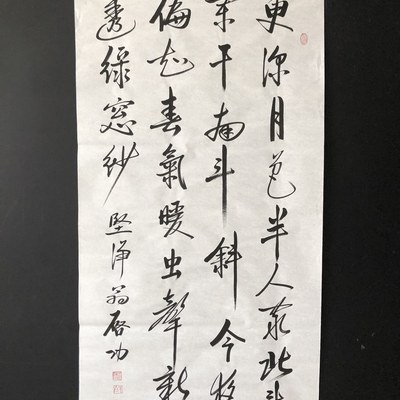 更深月色半人家北斗
闌干南斗斜今夜
偏知春氣暖虫聲新
透綠窓紗 堅淨翁启功